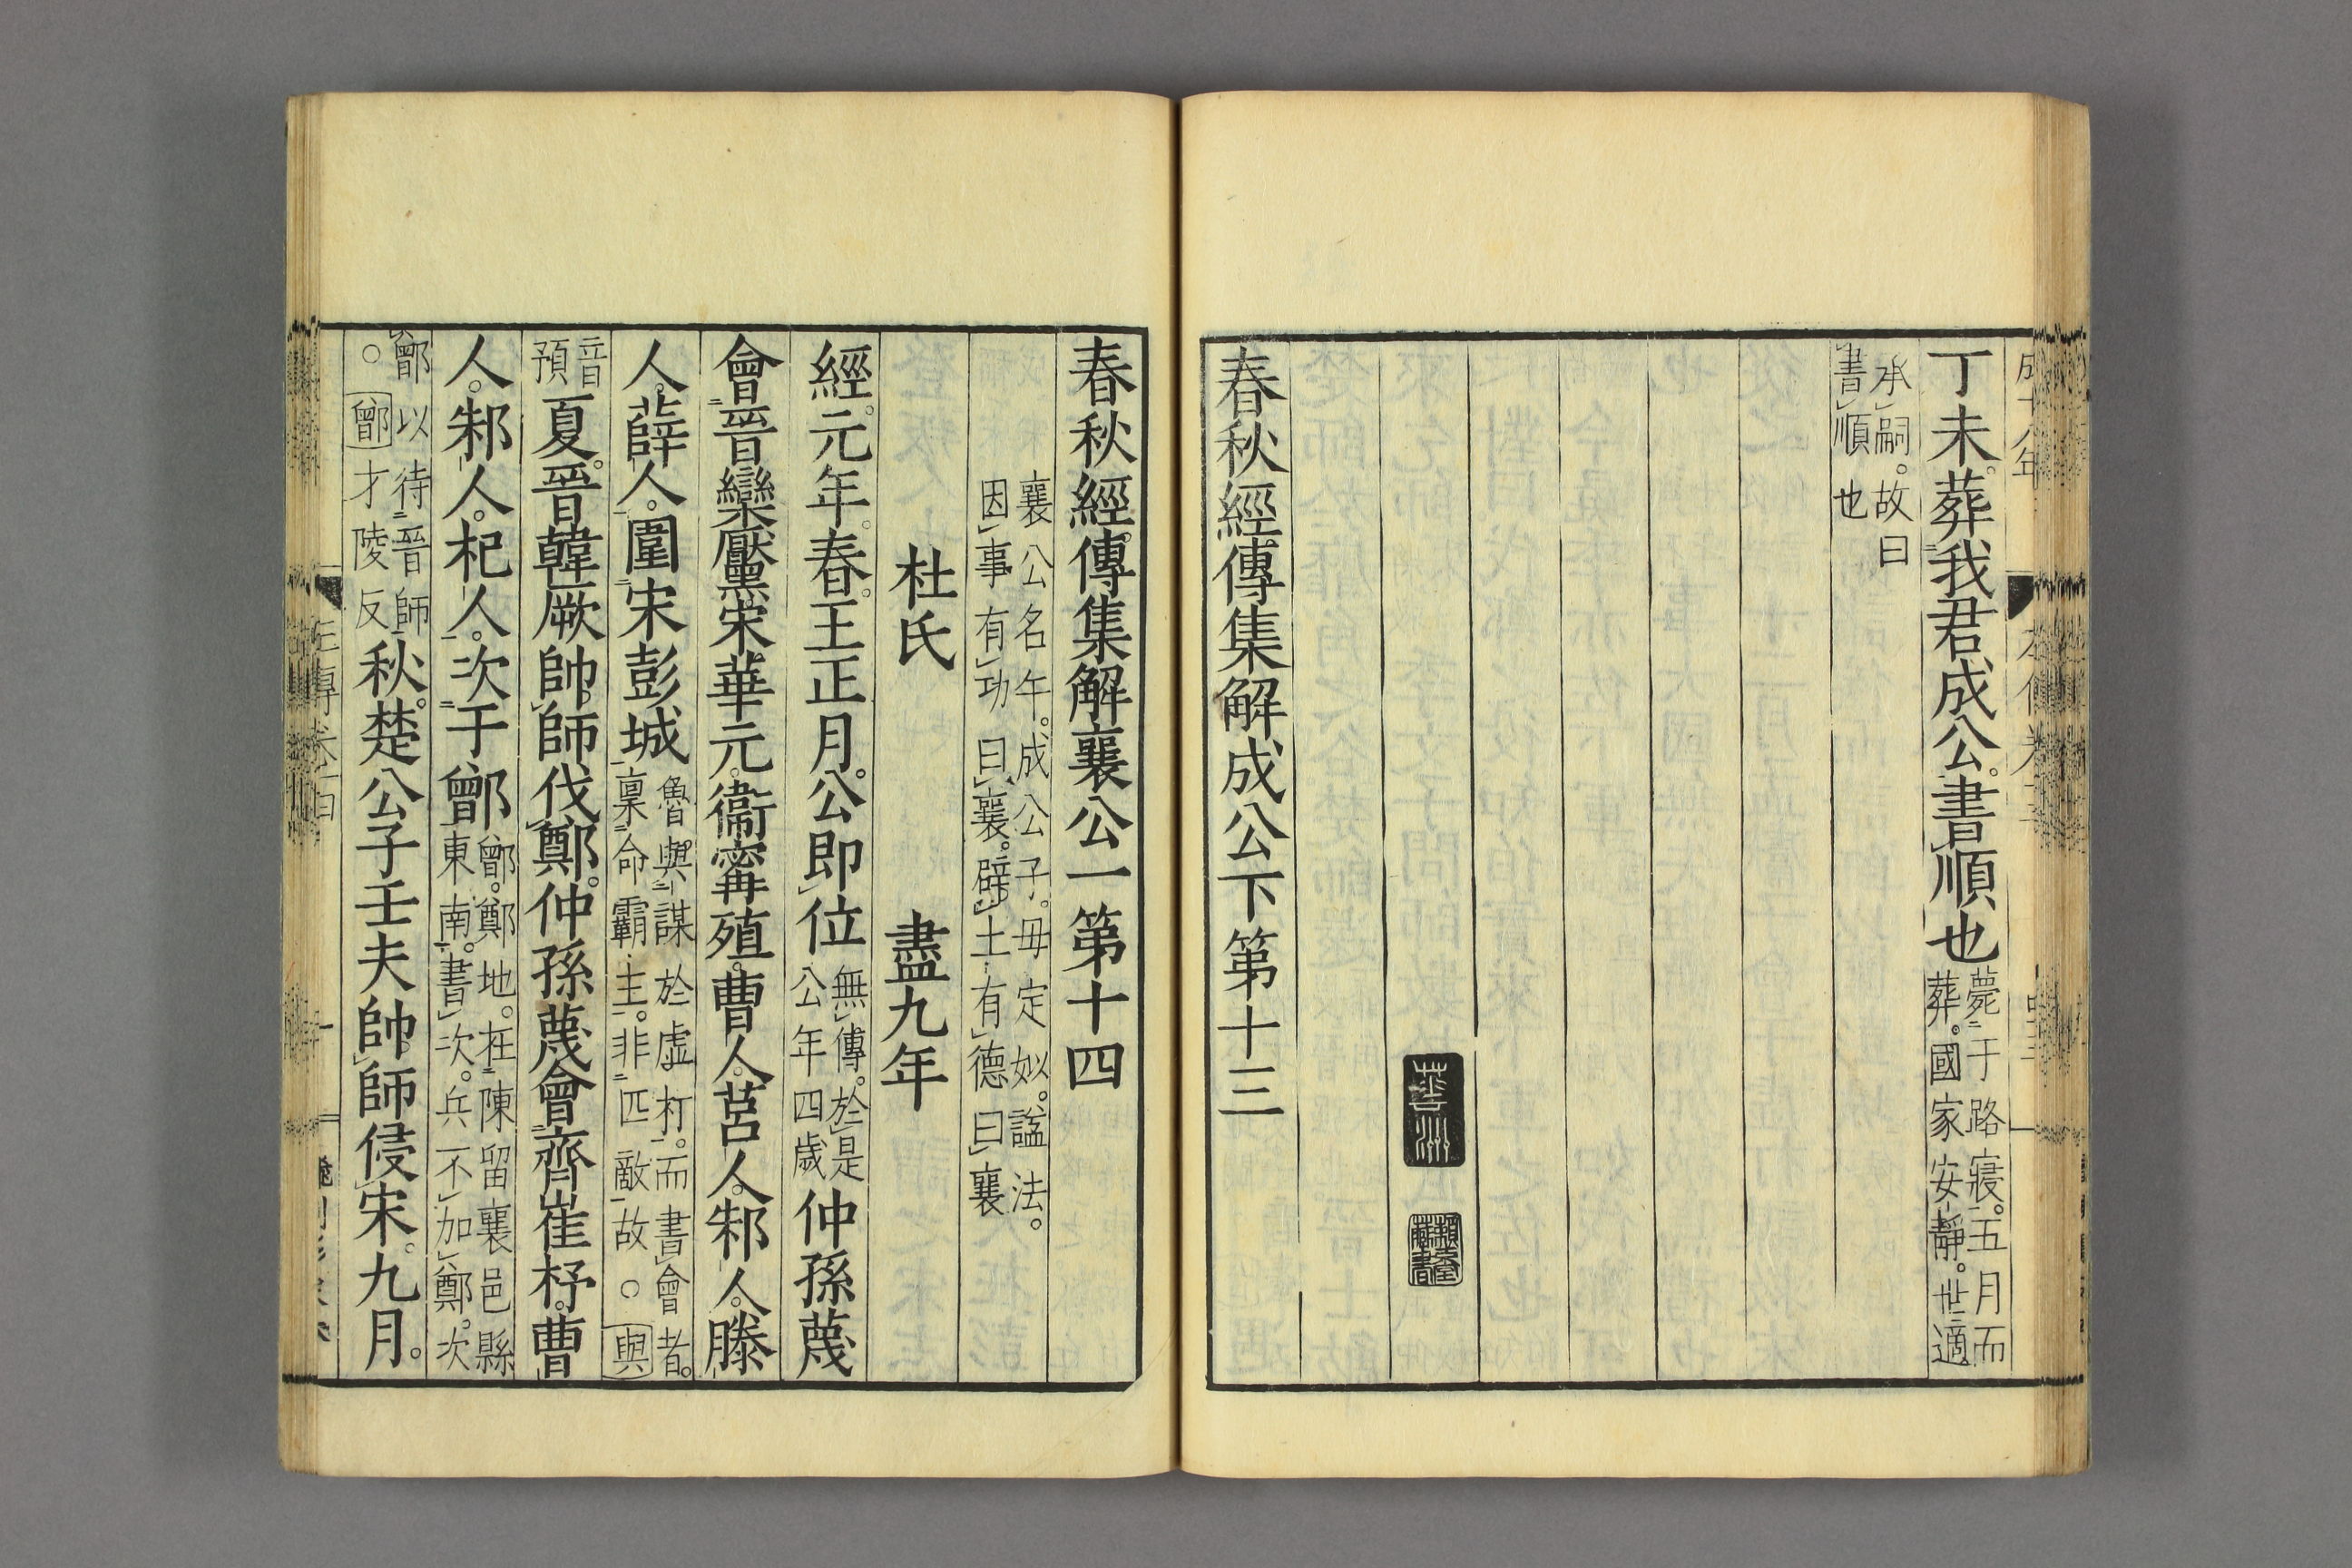 丁未。葬我君成公。書順也薨于路寢。五月而葬。國家安靜。世適
承嗣。故曰書順也
春秋經傳集解成公下第十三
春秋經傳集解襄公一第十四
襄公名午。成公子。毋定姒。謚法。因事有功曰襄。辟土有德曰襄
杜氏 盡九年
經。元年。春。王正月。公即位無傳。於是公年四歲仲孫蔑
會晉欒黶。宋華元。衞甯殖。曹人。莒人。邾人。滕
人。薛人。圍宋彭城魯與謀於虛朾。而書會者。稟命霸主。非匹敵故○與
音預夏。晉韓厥帥師伐鄭。仲孫蔑會齊崔杼。曹
人。邾人。杞人。次于鄫鄫。鄭地。在陳留襄邑縣東南。書次。兵不加鄭。次
鄫以待晉師○鄫才陵反秋。楚公子壬夫帥師侵宋。九月。